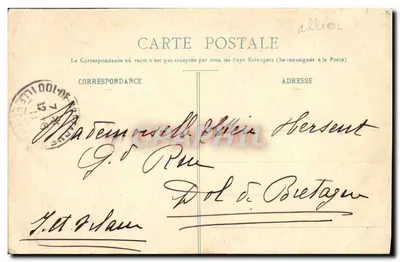 allier
CARTE POSTALE
La Correspondance au recto n'est pas acceptée par tous les Pays Etrangers (Se renseigner à la Poste)
CORRESPONDANCE
ADRESSE
DOL-DE
Mademoiselle Hersent
Gd Rue
Dol de Bretagne
I. et Vilaine
CPAPHIL